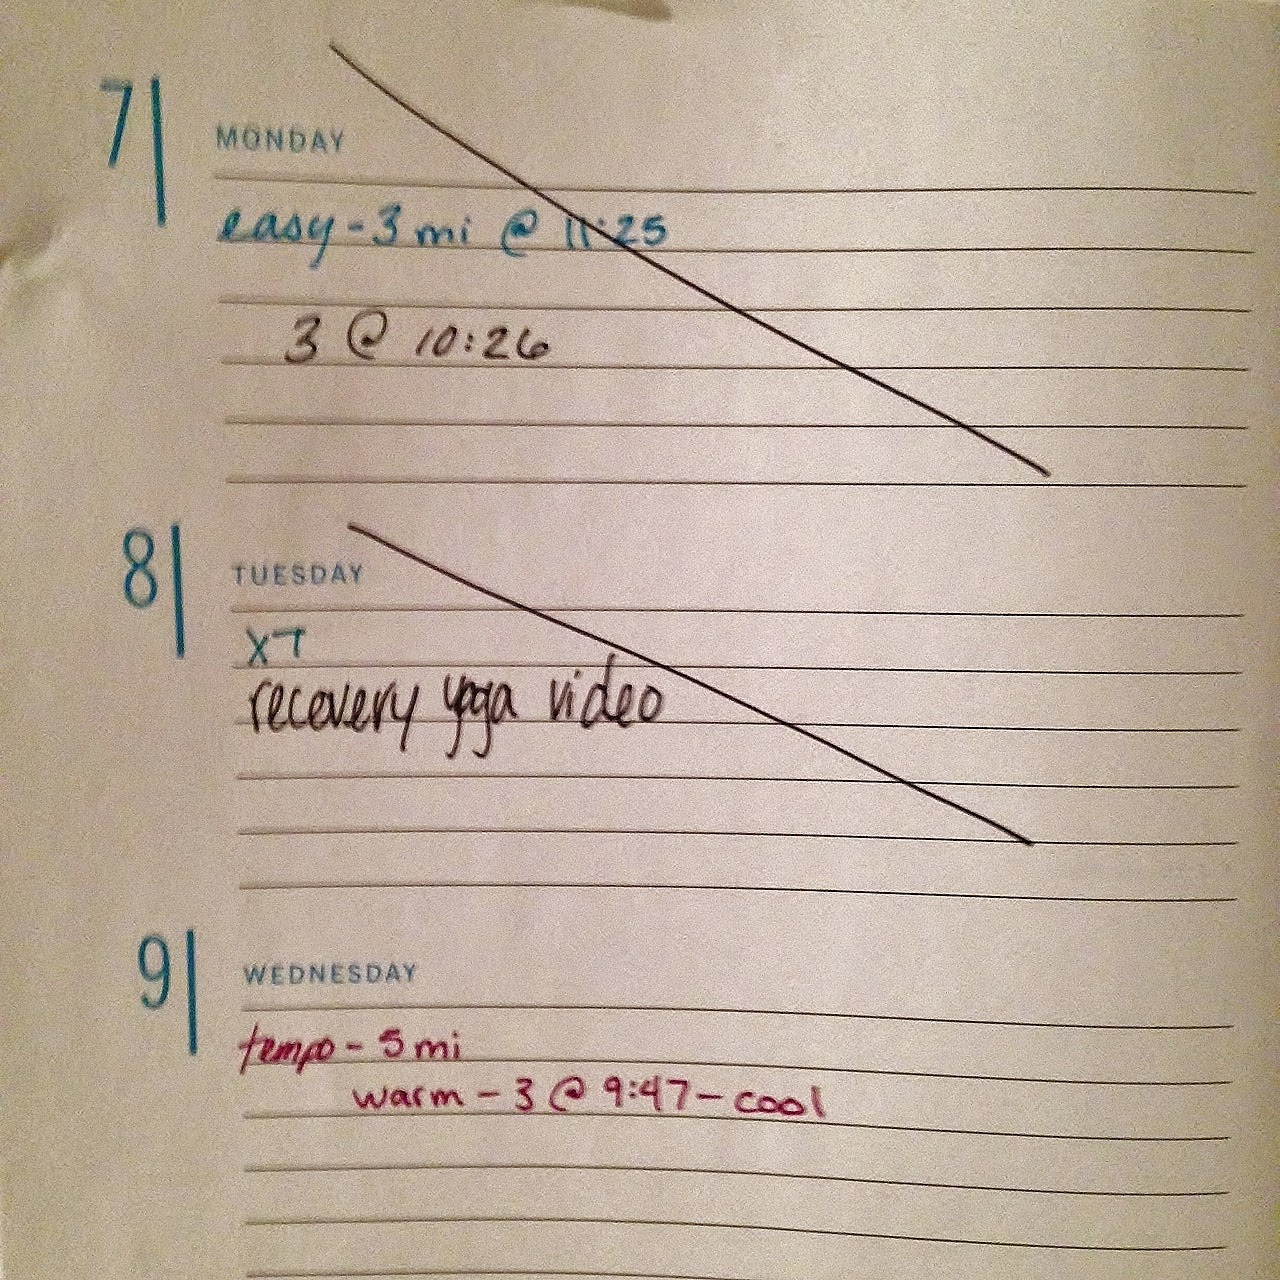 7
MONDAY
easy - 3 mi @ 11:25
3 @ 10:26
8
TUESDAY
XT
recovery yoga video
9
WEDNESDAY
tempo - 5 mi
warm - 3 @ 9:47 - cool